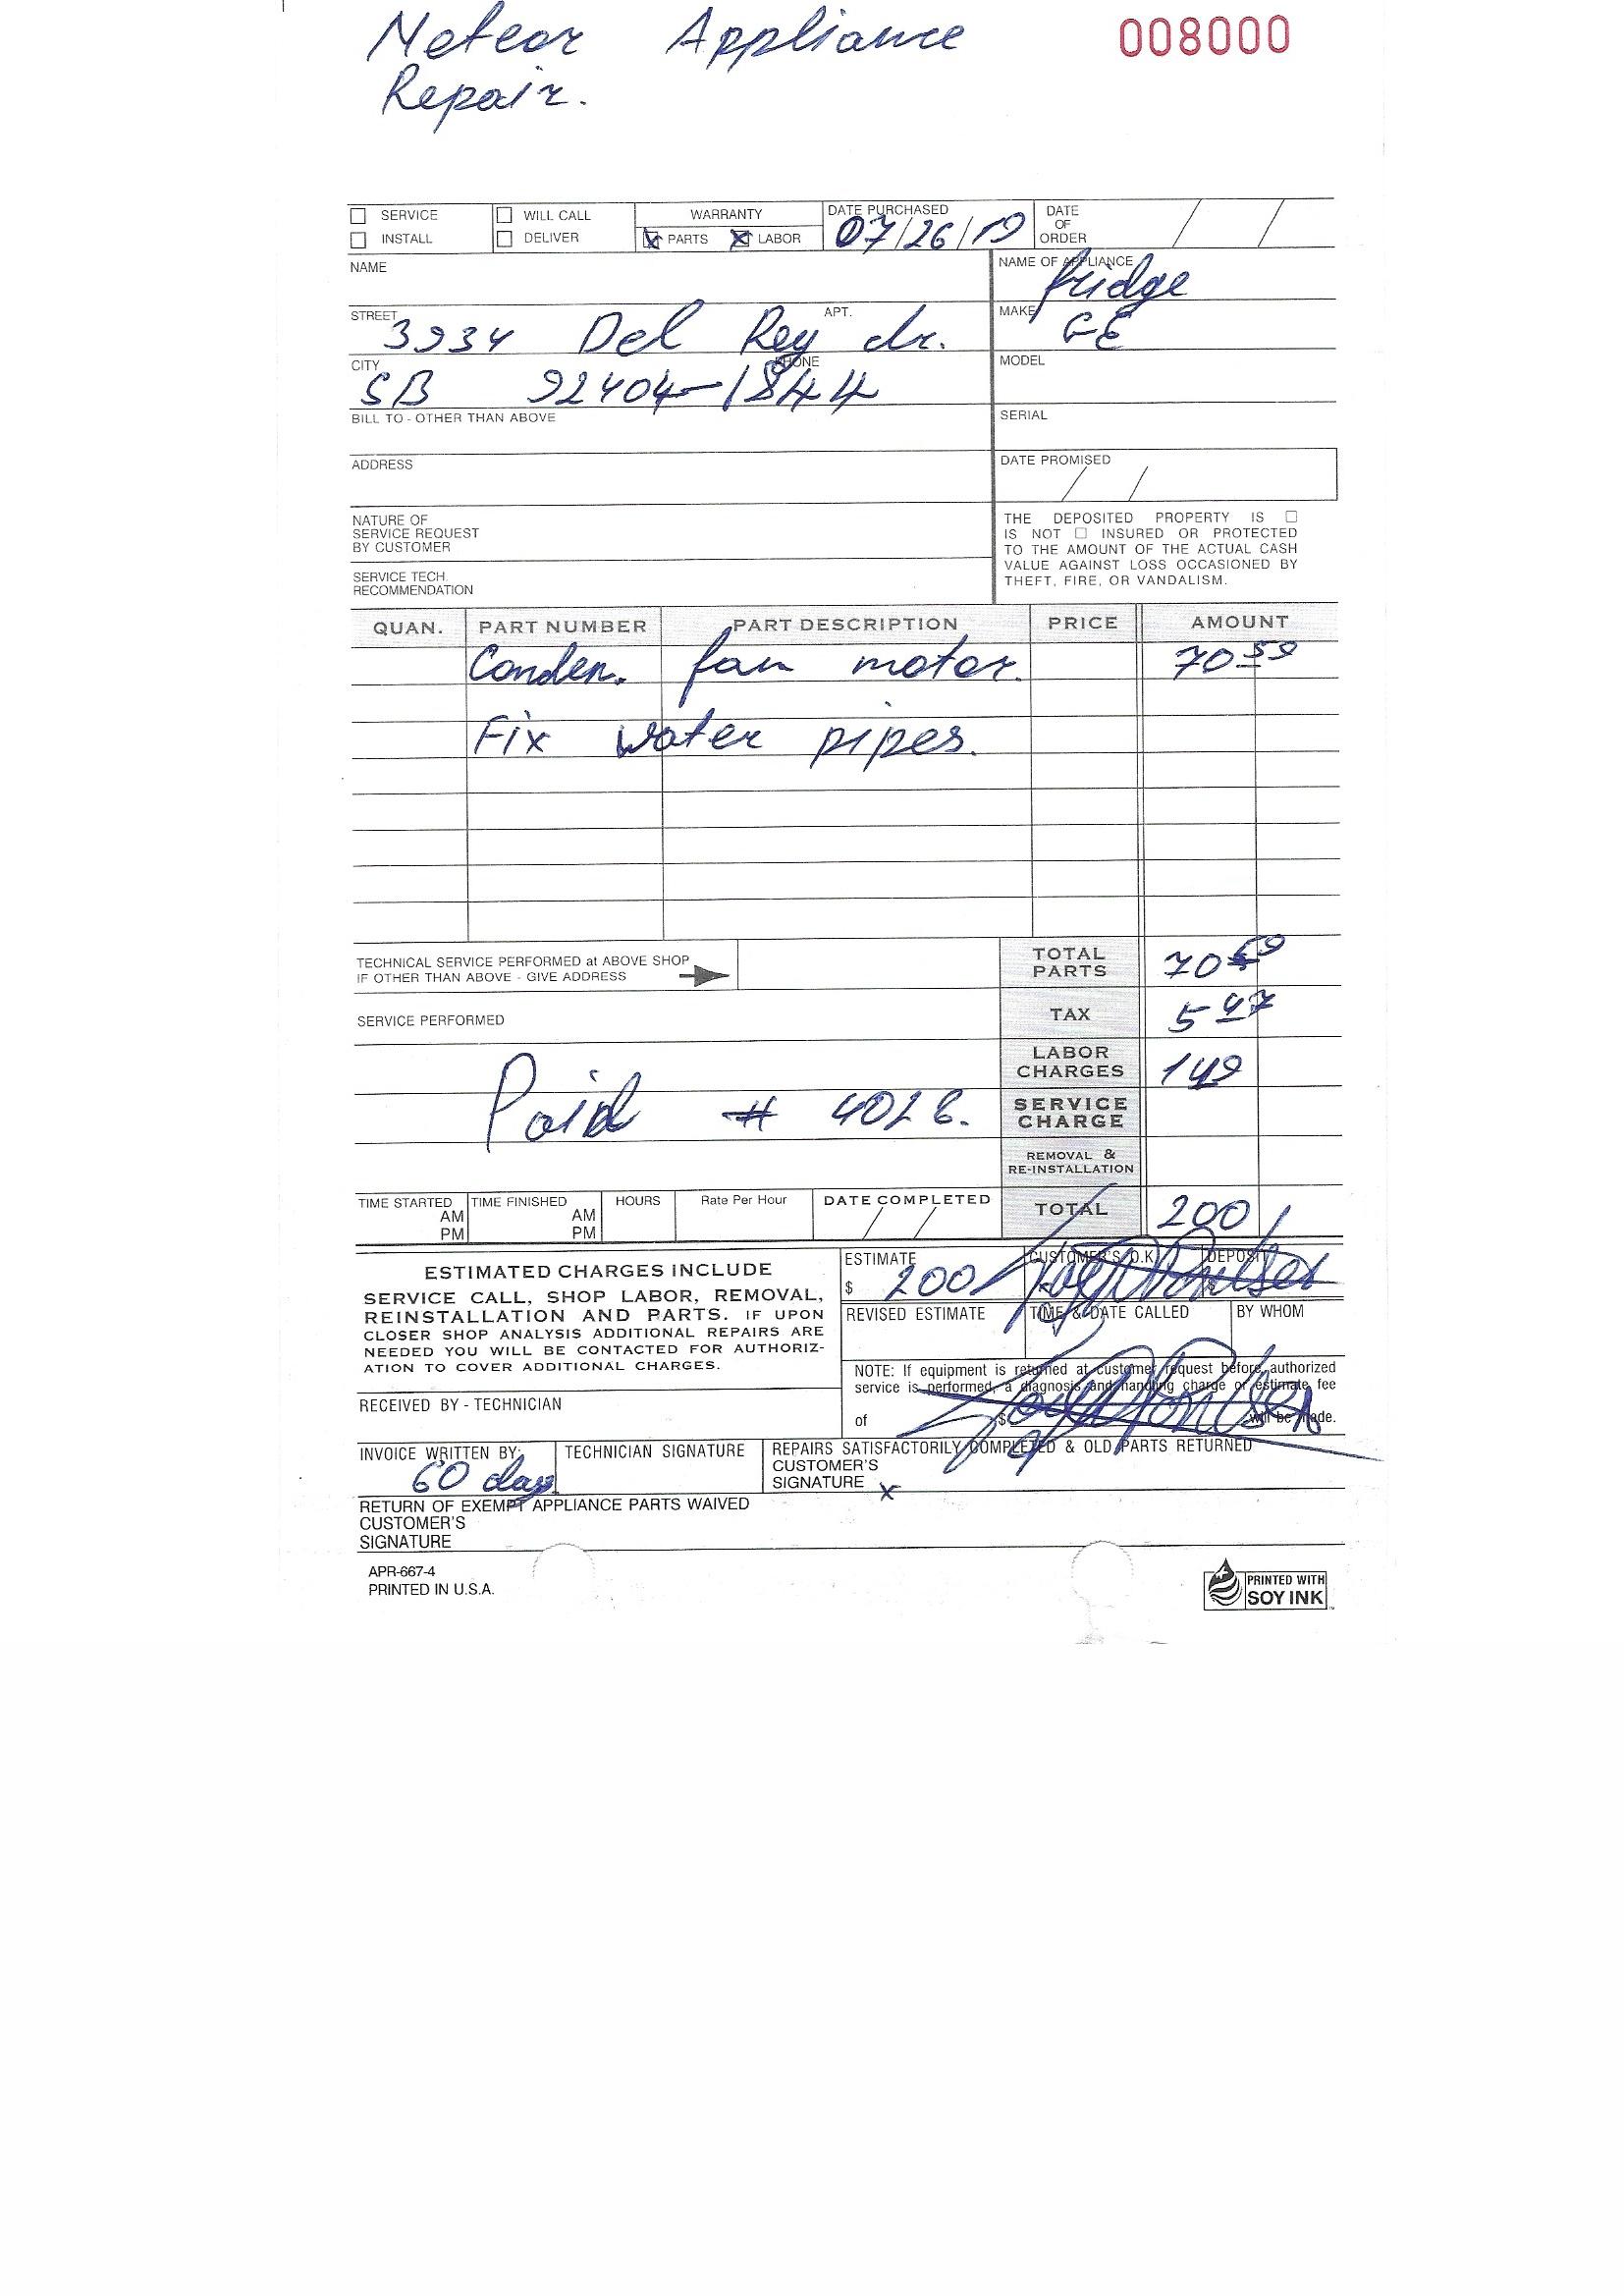 Meteor Appliance 008000
Repair.
SERVICE WILL CALL WARRANTY DATE PURCHASED DATE OF ORDER
INSTALL DELIVER PARTS LABOR 07/26/19 / /
NAME NAME OF APPLIANCE fridge
STREET 3934 Del Rey dr. APT. MAKE GE
CITY SB 92404-1844 PHONE MODEL
BILL TO - OTHER THAN ABOVE SERIAL
ADDRESS DATE PROMISED / /
NATURE OF
SERVICE REQUEST
BY CUSTOMER
SERVICE TECH.
RECOMMENDATION
THE DEPOSITED PROPERTY IS
IS NOT INSURED OR PROTECTED
TO THE AMOUNT OF THE ACTUAL CASH
VALUE AGAINST LOSS OCCASIONED BY
THEFT, FIRE, OR VANDALISM.
QUAN. PART NUMBER PART DESCRIPTION PRICE AMOUNT
Conden. fan motor. 70 59
Fix water pipes.
TECHNICAL SERVICE PERFORMED at ABOVE SHOP
IF OTHER THAN ABOVE - GIVE ADDRESS
TOTAL PARTS 70
SERVICE PERFORMED TAX 5 47
LABOR CHARGES 149
Paid # 4028. SERVICE CHARGE
REMOVAL & RE-INSTALLATION
TIME STARTED AM PM TIME FINISHED AM PM HOURS Rate Per Hour DATE COMPLETED / / TOTAL 200
ESTIMATED CHARGES INCLUDE
SERVICE CALL, SHOP LABOR, REMOVAL,
REINSTALLATION AND PARTS. IF UPON
CLOSER SHOP ANALYSIS ADDITIONAL REPAIRS ARE
NEEDED YOU WILL BE CONTACTED FOR AUTHORIZ-
ATION TO COVER ADDITIONAL CHARGES.
ESTIMATE $ 200 CUSTOMER'S O.K. DEPOSIT
REVISED ESTIMATE TIME & DATE CALLED BY WHOM
NOTE: If equipment is returned at customer request before authorized
service is performed, a diagnosis and handling charge or estimate fee
of $ will be made.
RECEIVED BY - TECHNICIAN
INVOICE WRITTEN BY: 60 day TECHNICIAN SIGNATURE REPAIRS SATISFACTORILY COMPLETED & OLD PARTS RETURNED
CUSTOMER'S
SIGNATURE x
RETURN OF EXEMPT APPLIANCE PARTS WAIVED
CUSTOMER'S
SIGNATURE
APR-667-4
PRINTED IN U.S.A.
PRINTED WITH
SOY INK